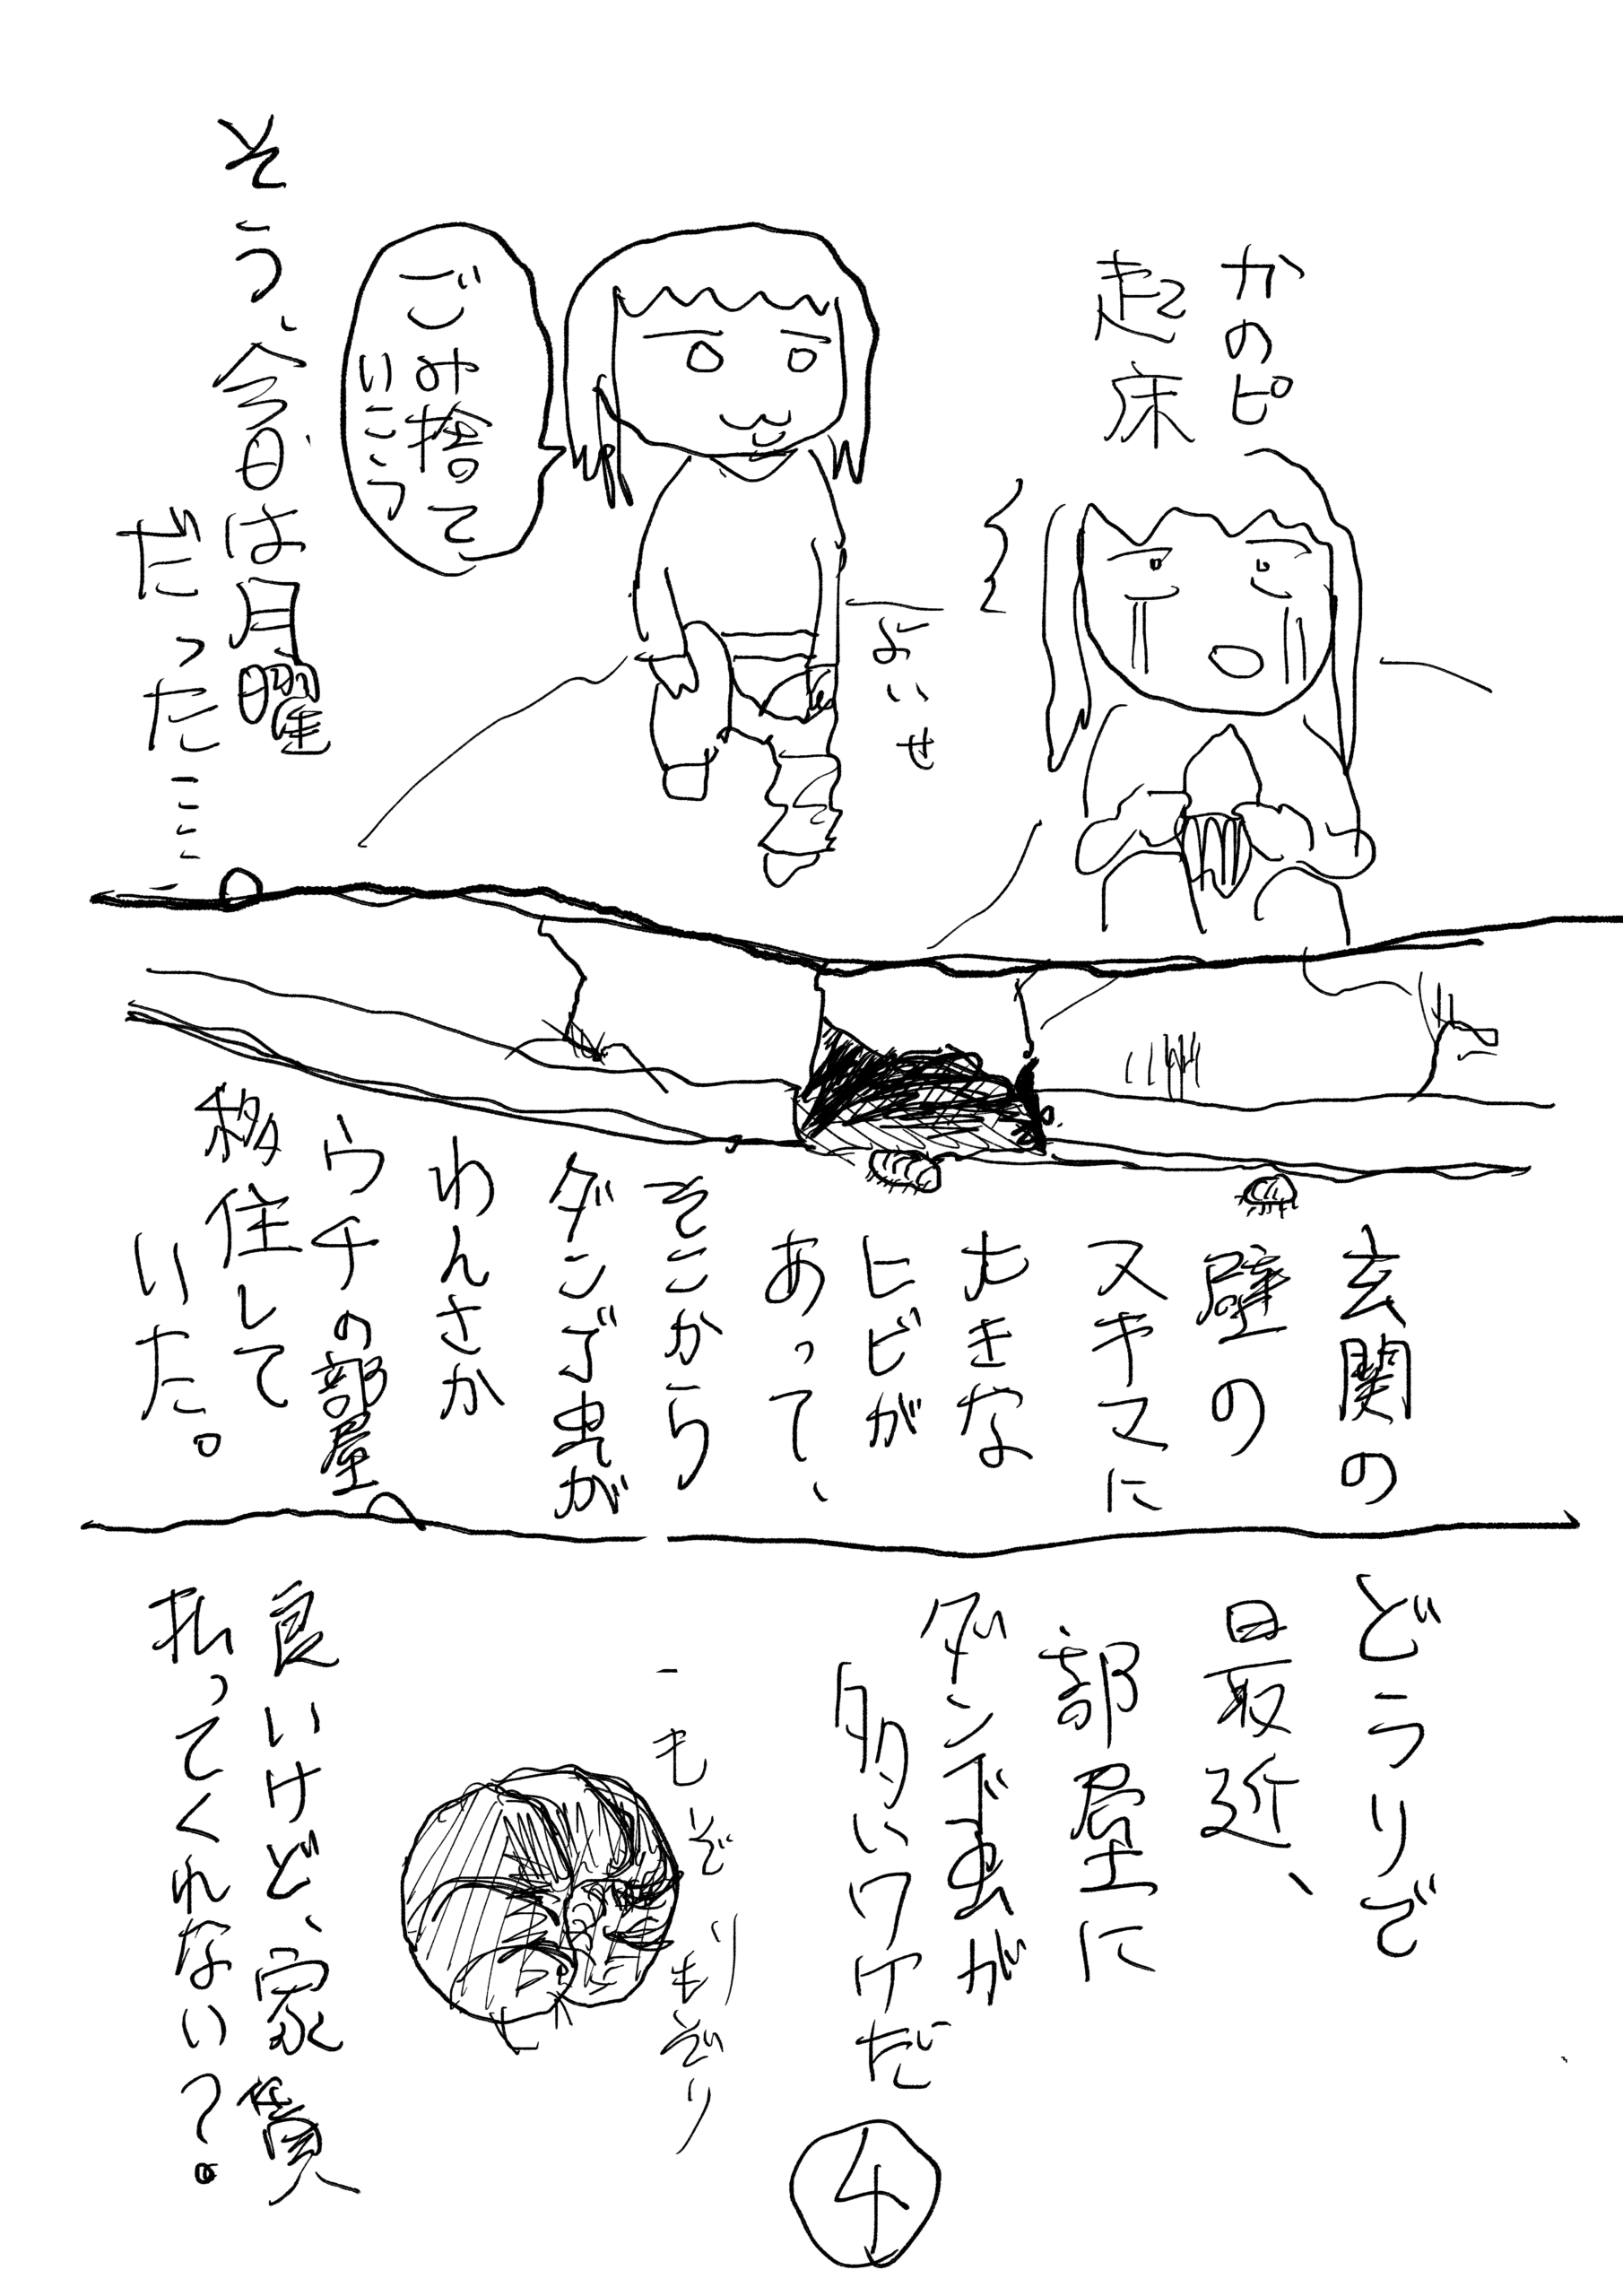 かのピ
起床
よいせ
ごみ捨て
いこう
そう、今日は月曜
だった……
玄関の
壁の
スキマに
大きな
ヒビが
あって、
そこから
ダンゴ虫が
わんさか
ウチの部屋
移住して
いた。
どうりで
最近、
部屋に
ダンゴ虫が
多いワケだ
もぞり
もぞり
良いけど、家賃
払ってくれない?。
④